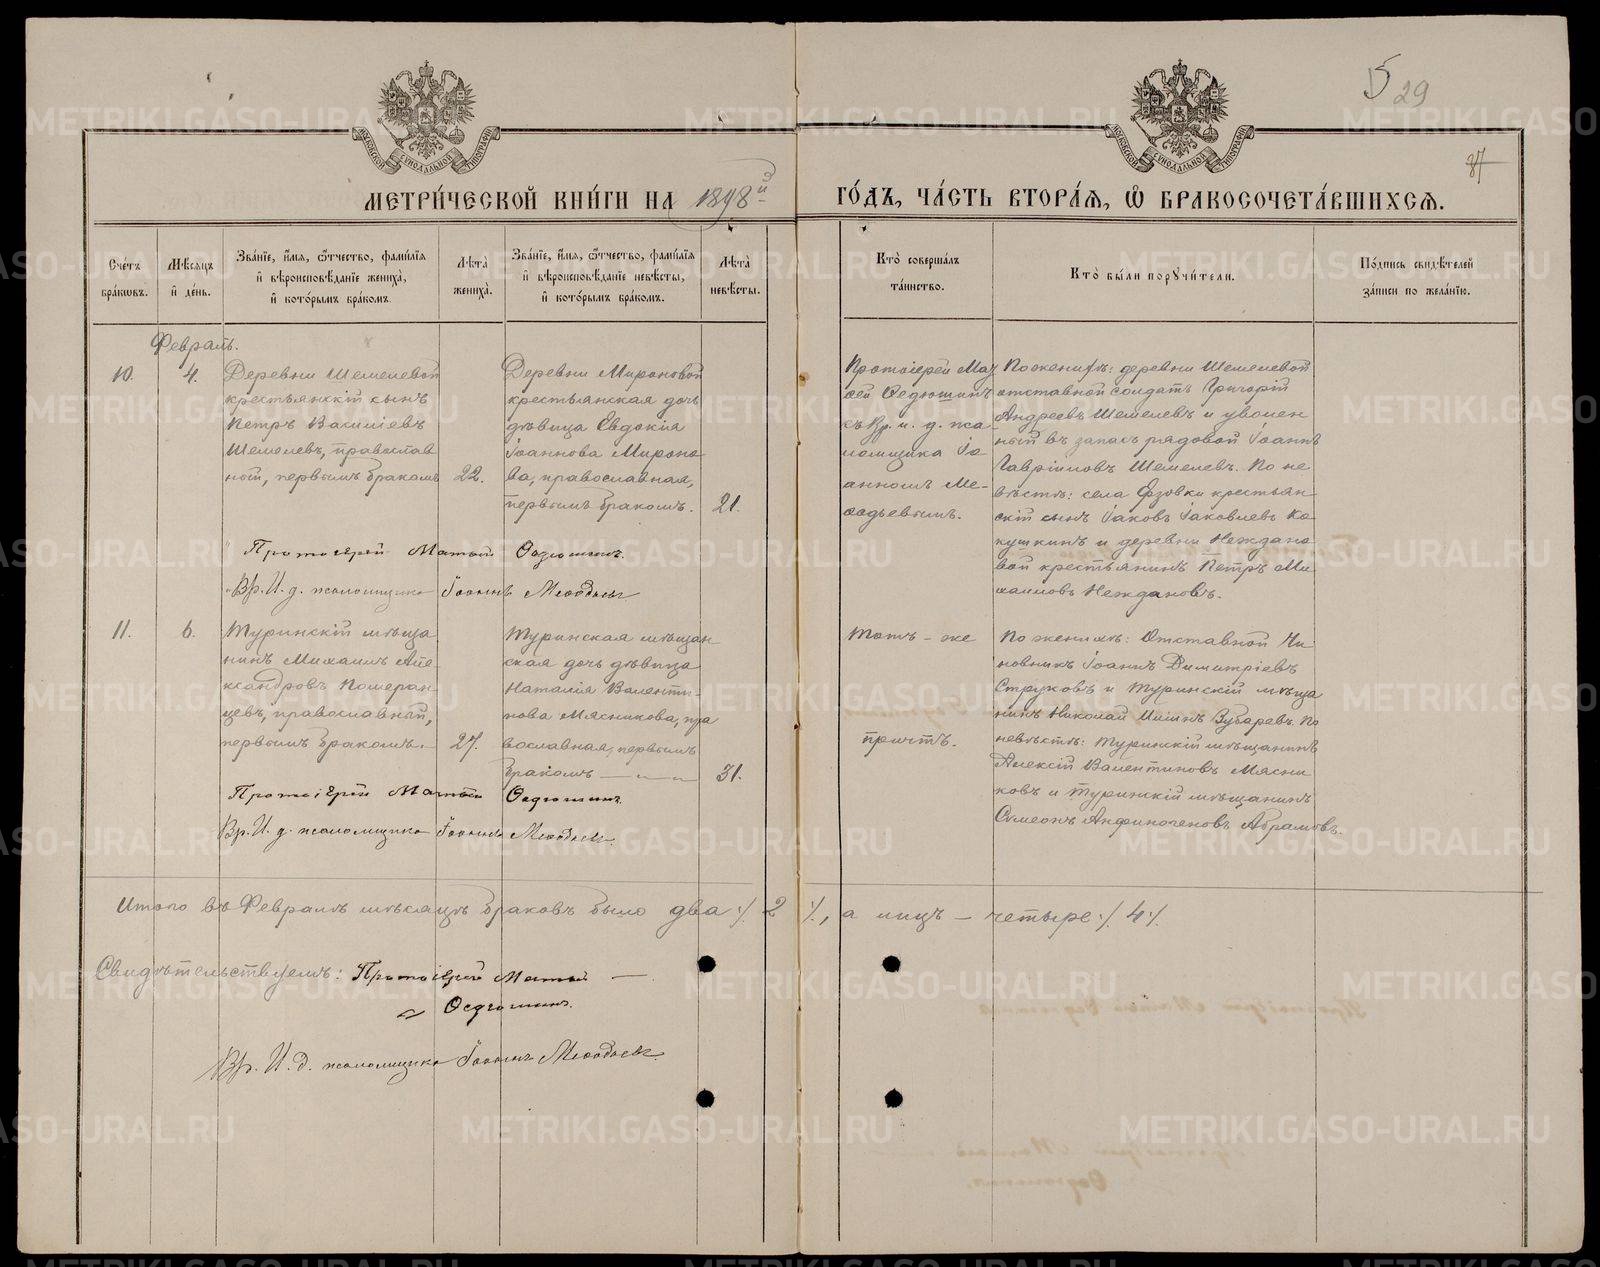 METRIKI.GASO-URAL.RU
29
МЕТРИ́ЧЕСКОЙ КНИ́ГИ НА 1898 й ГО́ДЪ, ЧА́СТЬ ВТОРА́Я, Ѽ БРАКОСОЧЕТА́ВШИХСЯ.
Сче́тъ бра́ковъ.
Мѣ́сяцъ и҆ де́нь.
Зва́нїе, и҆́мя, ѻ҆́тчество, фами́лїя и҆ вѣроисповѣ́данїе жениха̀, и҆ кото́рымъ бра́комъ.
Лѣ́та жениха̀.
Зва́нїе, и҆́мя, ѻ҆́тчество, фами́лїя и҆ вѣроисповѣ́данїе невѣ́сты, и҆ кото́рымъ бра́комъ.
Лѣ́та невѣ́сты.
Кто̀ соверша́лъ та́инство.
Кто̀ бы́ли порꙋчи́тели.
По́дпись свидѣ́телей за́писи по жела́нїю.
Февраль.
10.
4.
Деревни Шемелевой
крестьянскій сынъ
Петръ Василіевъ
Шемелевъ, православ
ный, первымъ бракомъ
22.
Деревни Мироновой
крестьянская дочь
дѣвица Евдокія
Іоаннова Мироно
ва, православная,
первымъ бракомъ.
21.
Протоіерей Мат
ѳей Ѳедюшинъ
съ Вр. и. д. пса
ломщика Іо
анномъ Ме-
ѳодьевымъ.
По женихѣ: деревни Шемелевой
отставной солдатъ Григорій
Андреевъ Шемелевъ и уволен
ный въ запасъ рядовой Іоаннъ
Гавріиловъ Шемелевъ. По не
вѣстѣ: села крестьян
скій сынъ Іаковъ Іаковлевъ Ко
кушкинъ и деревни Неждано
вой крестьянинъ Петръ Ми
хаиловъ Неждановъ.
Протоіерей Матѳей Ѳедюшинъ.
Вр. И. д. псаломщика Іоаннъ Меѳодьевъ
11.
6.
Туринскій мѣща
нинъ Михаилъ Але
ксандровъ Померан
цевъ, православный,
первымъ бракомъ.
27.
Туринская мѣщан
ская дочь дѣвица
Наталія Валенти-
нова Мясникова, пра
вославная, первымъ
бракомъ
31.
Тотъ-же
причтъ.
По женихѣ: Отставной Чи
новникъ Іоаннъ Димитріевъ
Струковъ и Туринскій мѣща
нинъ Николай Зубаревъ. По
невѣстѣ: Туринскій мѣщанинъ
Алексій Валентиновъ Мясни
ковъ и Туринскій мѣщанинъ
Симеонъ Абрамовъ.
Протоіерей Матѳей Ѳедюшинъ.
Вр. И. д. псаломщика Іоаннъ Меѳодьевъ.
Итого въ Февралѣ мѣсяцѣ браковъ было два ./. 2 ./., а лицъ - четыре ./. 4 ./.
Свидѣтельствуемъ: Протоіерей Матѳей
Ѳедюшинъ.
Вр. И. д. псаломщика Іоаннъ Меѳодьевъ